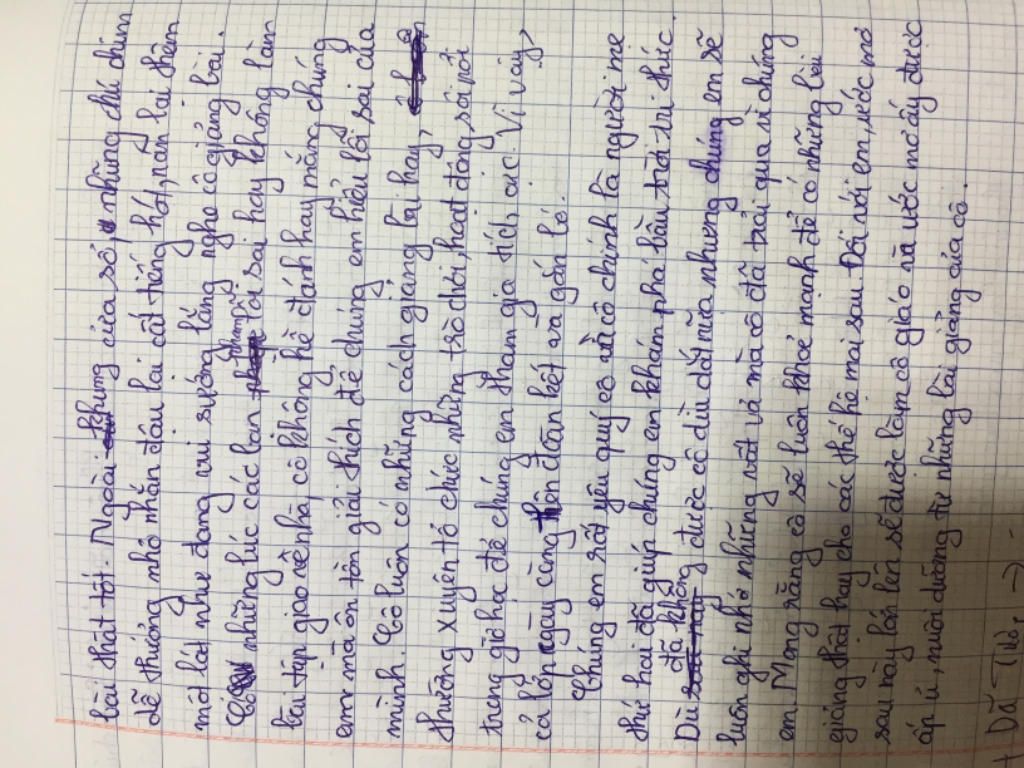 bài thật tốt. Ngoài khung cửa sổ, những chú chim
dễ thương nhỏ nhắn đậu lại cất tiếng hót, nán lại thêm
một lát như đang vui sướng lắng nghe cô giảng bài.
Có những lúc các bạn phạm lỗi sai hay không làm
bài tập giao về nhà, cô không hề đánh hay mắng chúng
em mà ôn tồn giải thích để chúng em hiểu lỗi sai của
mình. Cô luôn có những cách giảng bài hay,
thường xuyên tổ chức những trò chơi, hoạt động sôi nổi
trong giờ học để chúng em tham gia tích cực. Vì vậy,
cả lớp ngày càng đoàn kết và gắn bó.
Chúng em rất yêu quý cô vì cô chính là người mẹ
thứ hai đã giúp chúng em khám phá bầu trời tri thức.
Dù đã không được cô dìu dắt nữa nhưng chúng em sẽ
luôn ghi nhớ những vất vả mà cô đã trải qua vì chúng
em. Mong rằng cô sẽ luôn khoẻ mạnh để có những bài
giảng thật hay cho các thế hệ mai sau. Đối với em, ước mơ
sau này lớn lên sẽ được làm cô giáo và ước mơ ấy được
ấp ủ, nuôi dưỡng từ những bài giảng của cô.
+ Dã